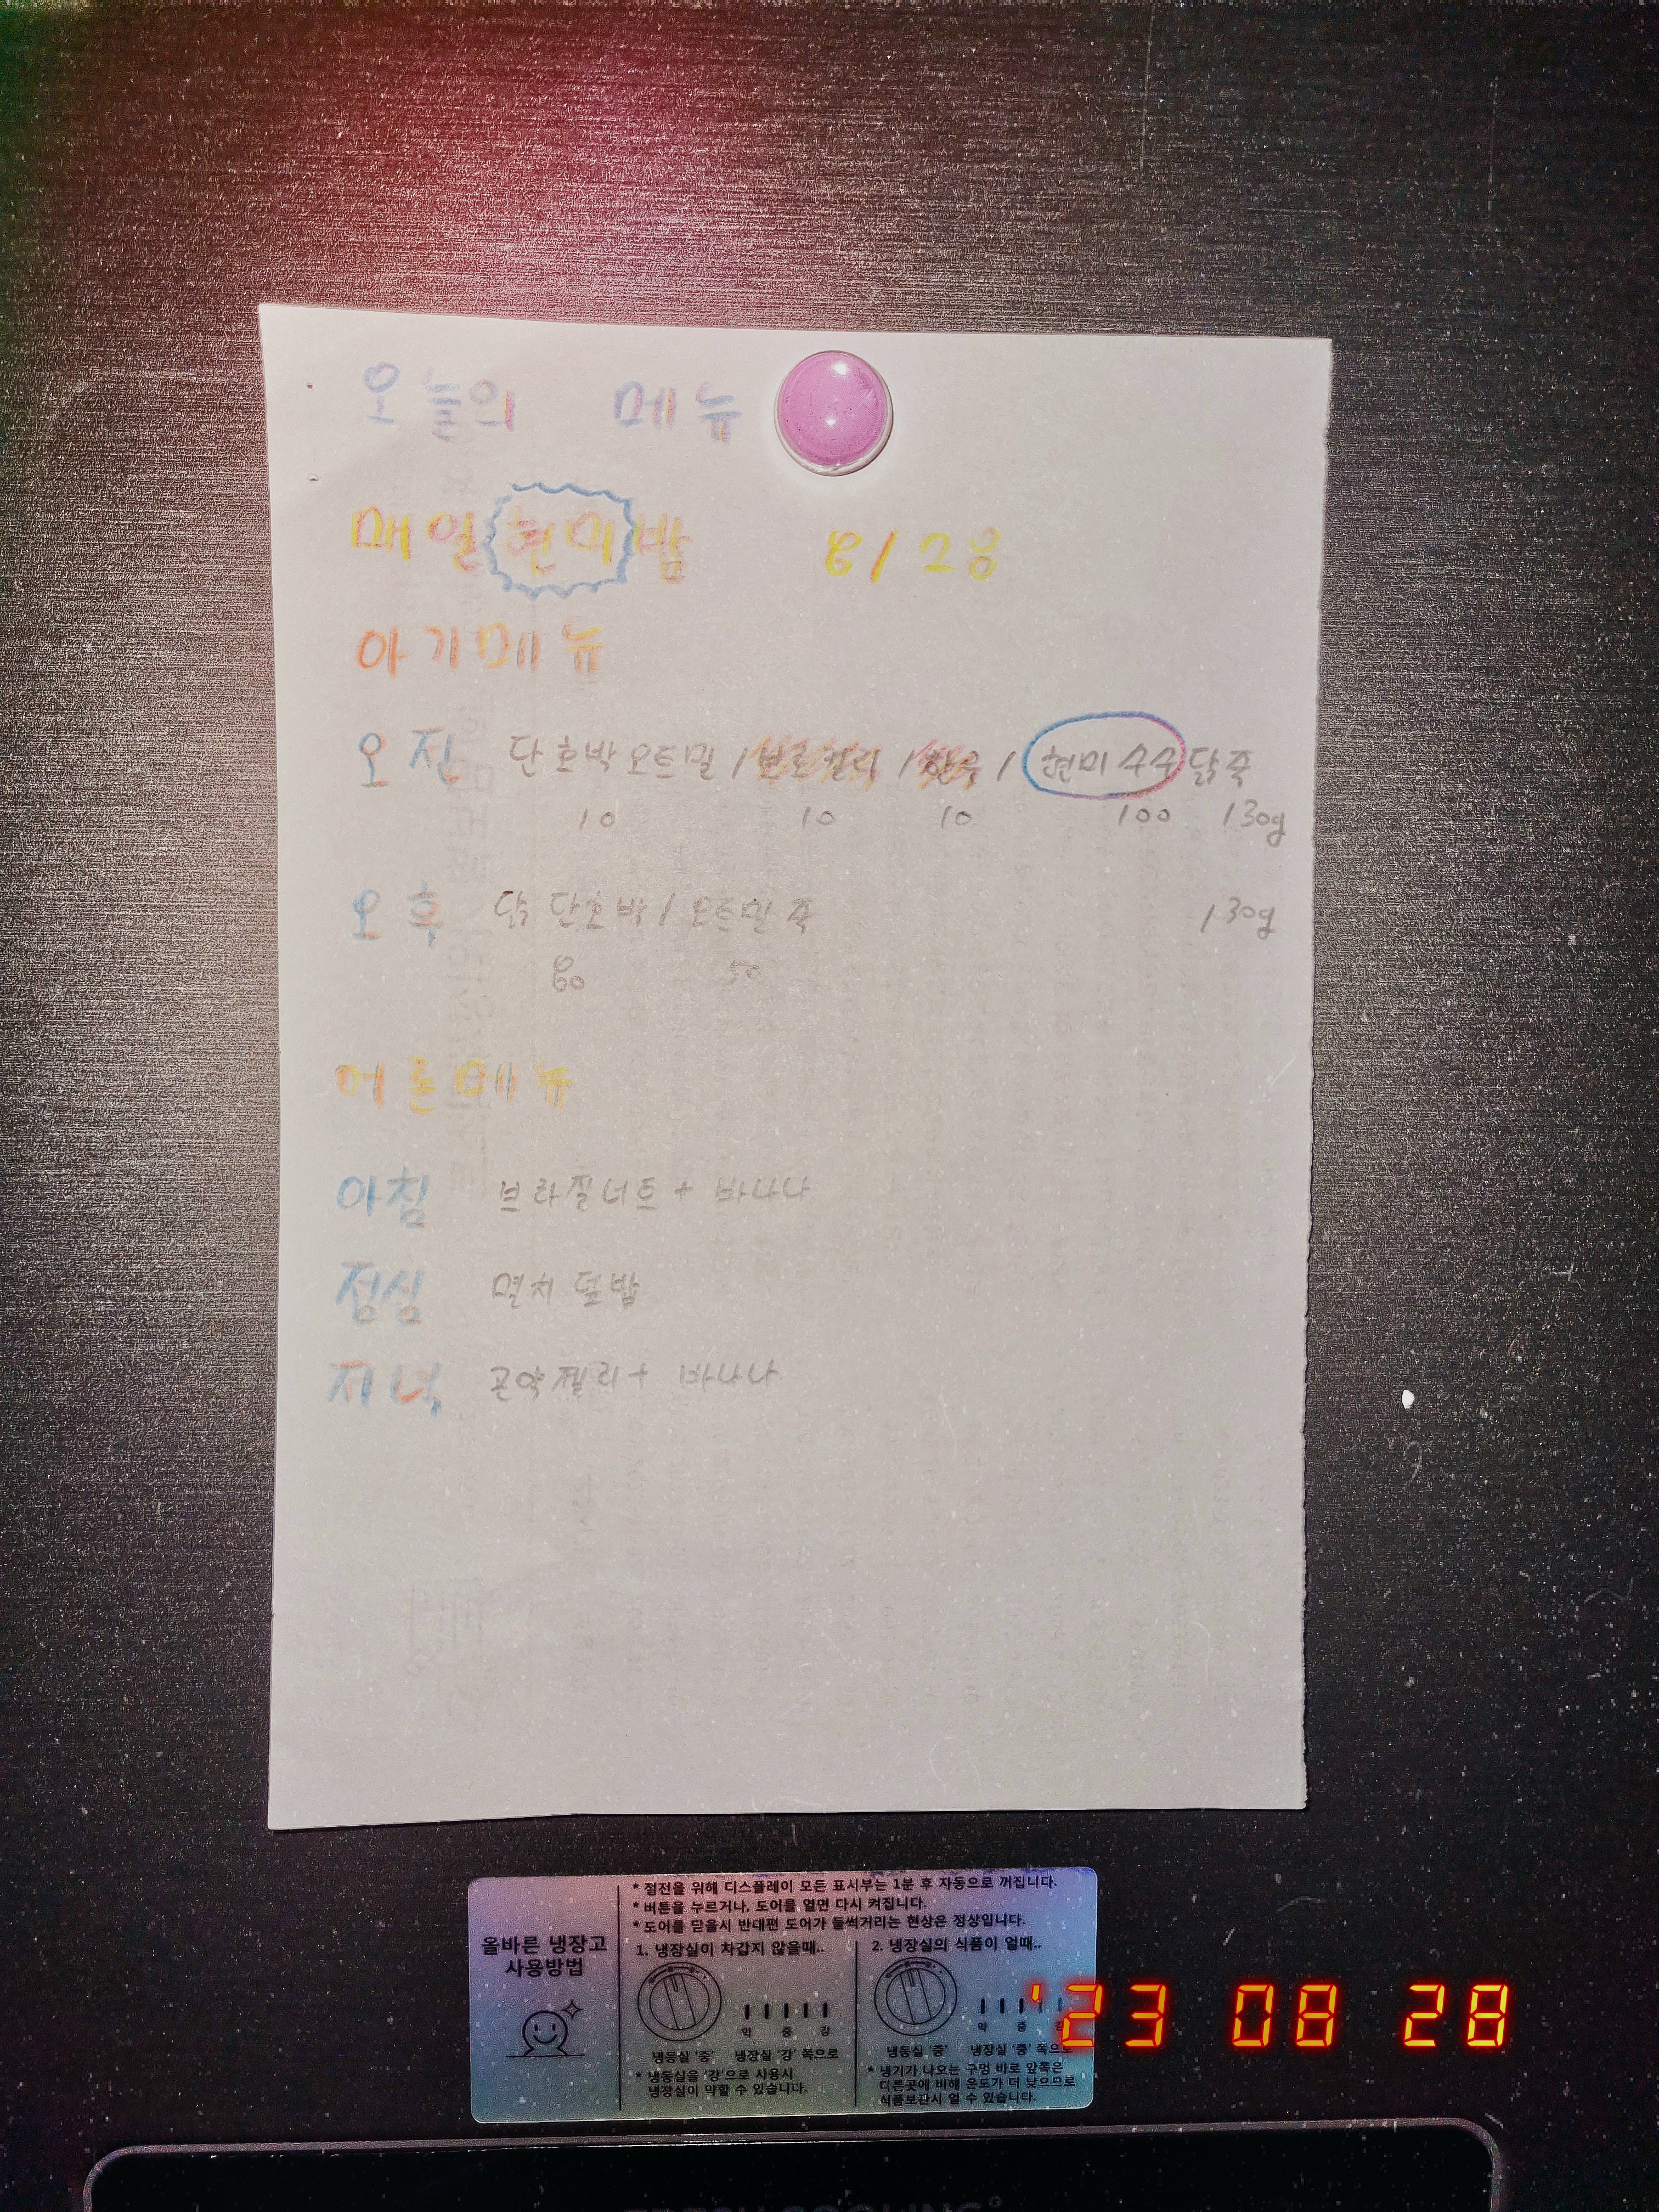 오늘의 메뉴
매일현미밥 8/28
아기메뉴
오전 단호박오트밀 / 브로컬리 / / 현미수수닭죽
10 10 10 100 130g
오후 닭단호박 / 오트밀죽 130g
80 50
어른메뉴
아침 브라질너트 + 바나나
점심 멸치덮밥
저녁 곤약젤리 + 바나나
올바른 냉장고
사용방법
* 절전을 위해 디스플레이 모든 표시부는 1분 후 자동으로 꺼집니다.
* 버튼을 누르거나, 도어를 열면 다시 켜집니다.
* 도어를 닫을시 반대편 도어가 들썩거리는 현상은 정상입니다.
1. 냉장실이 차갑지 않을때..
약 중 강
냉동실 '중' 냉장실 '강' 쪽으로
* 냉동실을 '강'으로 사용시
냉장실이 약할 수 있습니다.
2. 냉장실의 식품이 얼때..
약 중 강
냉동실 '중' 냉장실 '중' 쪽으로
* 냉기가 나오는 구멍 바로 앞쪽은
다른곳에 비해 온도가 더 낮으므로
식품보관시 얼 수 있습니다.
'23 08 28